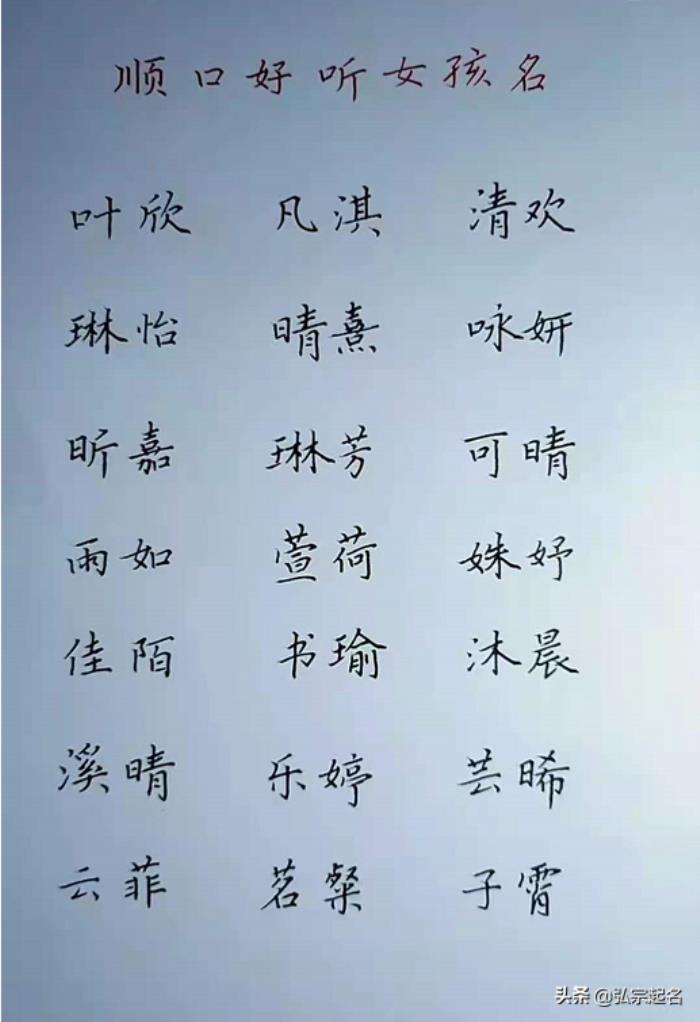 顺口好听女孩名
叶欣 凡淇 清欢
琳怡 晴熹 咏妍
昕嘉 琳芳 可晴
雨如 萱荷 姝妤
佳陌 书瑜 沐晨
溪晴 乐婷 芸晞
云菲 茗粲 子霄
头条 @弘宗起名